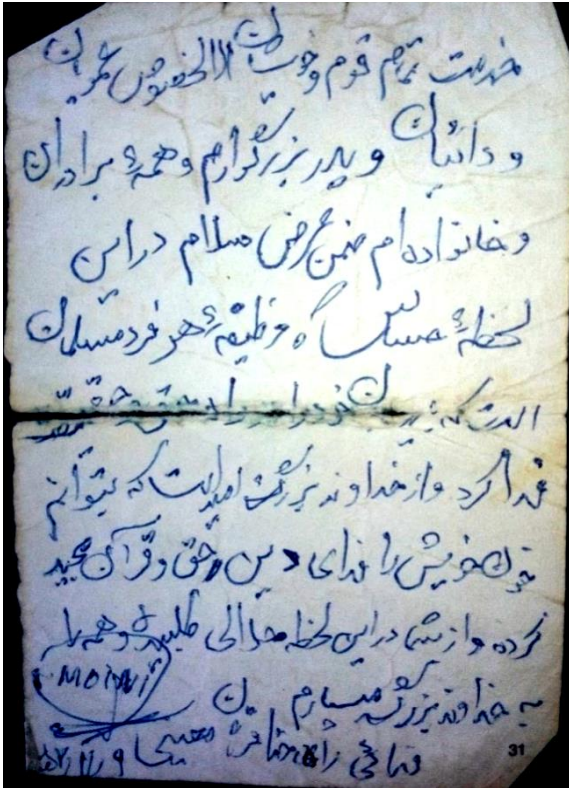 خدمت تمام قوم و خویشان الاخصوص عمویان
و دائیان و پدر بزرگوارم و همهٔ برادران
و خانواده ام ضمن عرض سلام در این
لحظهٔ حساس که وظیفهٔ هر فرد مسلمان
است که خود را در راه حق و حقیقت
فدا کرد و از خداوند بزرگ امید است که بتوانم
خون خویش را فدای دین و حق و قرآن مجید
کرده و از شما در این لحظه حلالی طلبیده و همه را
به خداوند بزرگ میسپارم
MOINI
31